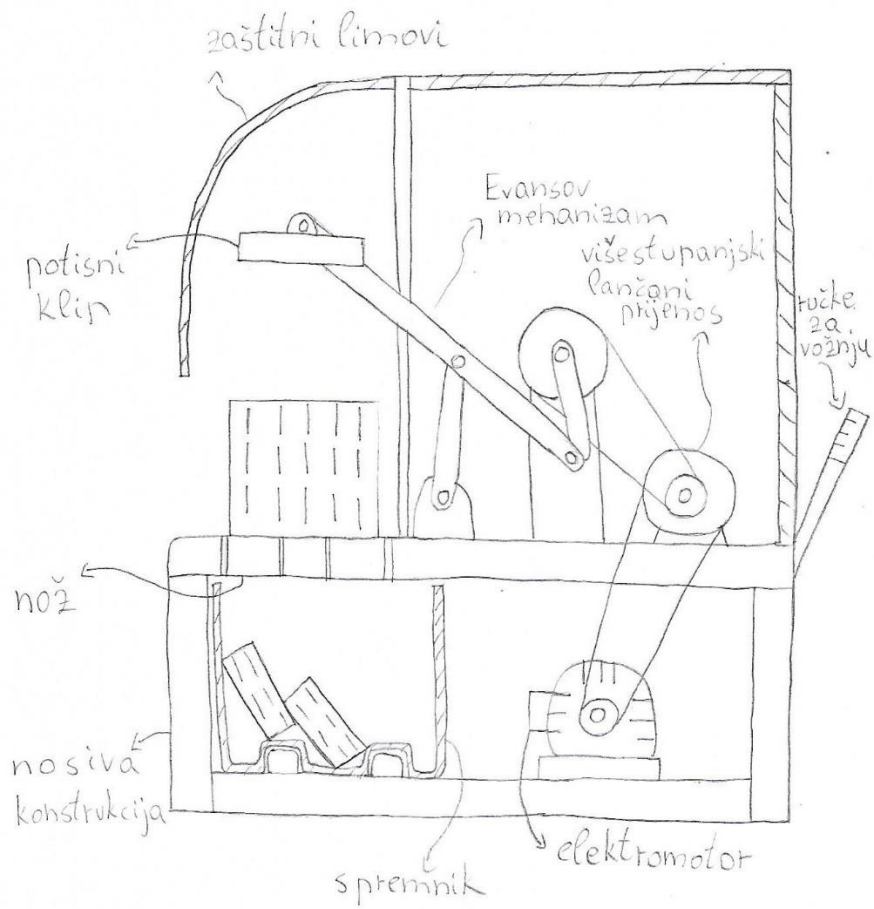 zaštitni limovi
Evansov
mehanizam
potisni
klip
višestupanjski
lančani
prijenos
ručke
za
vožnju
nož
nosiva
konstrukcija
elektromotor
spremnik